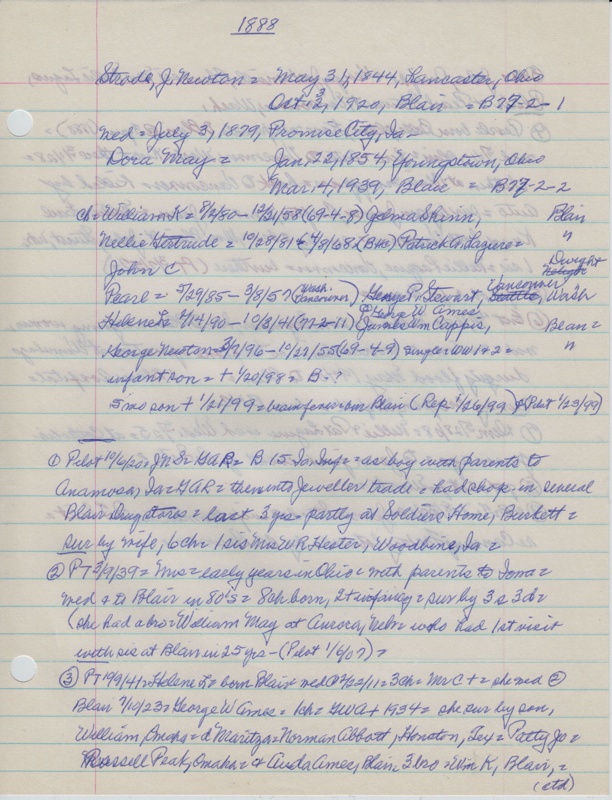 1888
Strode, J. Newton = May 31, 1844, Lancaster, Ohio
Oct 12, 1920, Blair = B27-2-1
med = July 3, 1879, Promise City, Ia =
Dora May = Jan. 22, 1854, Youngstown, Ohio
Mar. 4, 1939, Blair = B27-2-2
ch = William K = 8/2/80 - 12/21/58 (69-4-8) Shinn, Blair
Nellie Gertrude = 10/28/81 & 4/8/68 (B+C) Patrick A. Lazure = "
John C Dwight
Pearl = 5/29/85 - 3/8/57 (Wash. Vancouver) George P. Stewart, Vancouver Wash
Helene L = 7/14/90 - 10/3/41 (77-2-11) Wm Cappis, Blair =
W. Ames
George Newton = 3/7/96 - 10/21/55 (69-4-9) single WW 1 & 2 = "
infant son = + 1/20/98 = B-?
5 mo son + 1/21/99 = brain fever = bur Blair (Rep. 1/26/99) & Pilot 1/23/99)
① Pilot 10/6/20 = J.N. Sr GAR = B 15 Ia Inf = as boy with parents to
Anamosa, Ia = GAR = then into Jeweller trade = had shop in several
Blair Drug stores = last 3 yrs partly at Soldiers Home, Burkett =
sur by wife, 6 ch = 1 sis Mrs W R Hester, Woodbine, Ia =
② PT 3/9/39 = Mrs = early years in Ohio = with parents to Iowa =
med & to Blair in 80's = 8 ch born, 2 + infancy = sur by 3 s 3 d =
(she had a bro = William May at Aurora, Nebr who had 1st visit
with sis at Blair in 25 yrs - (Pilot 1/6/07) =
③ PT 10/9/41 = Helene L = born Blair = med ① 2/22/11 = 3 ch = Mr C + = she med ②
Blair 7/10/23 = George W Ames = 1 ch = GWA + 1934 = she sur by son,
William, Omaha = d Maritza = Norman Abbott, Houston, Tex = Patty Jo =
Russell Peak, Omaha = & Auda Ames, Blair 3 bro = Wm K, Blair, =
(ctd)